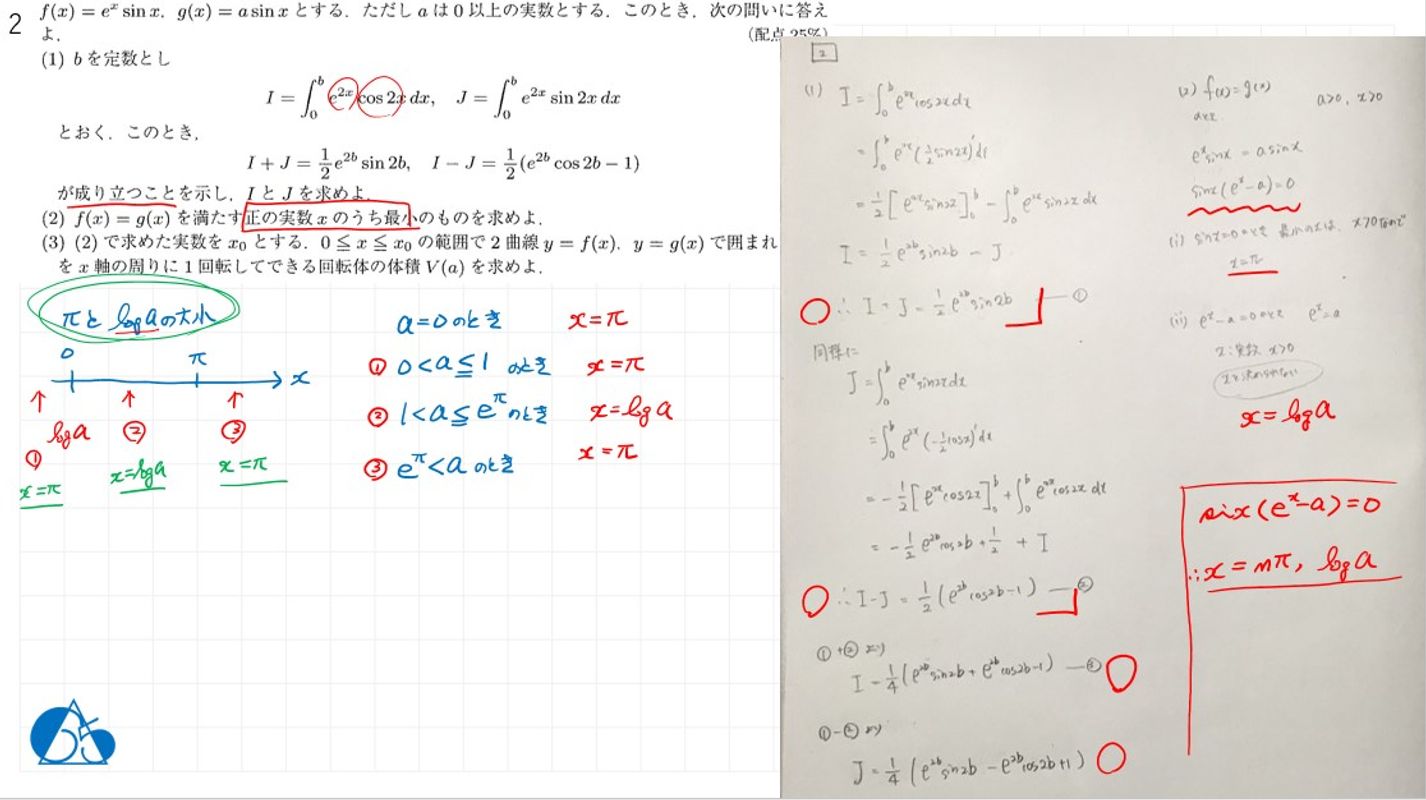 2
f(x) = e^x sin x, g(x) = a sin x とする．ただし a は 0 以上の実数とする．このとき，次の問いに答え
よ．
(配点 25%)
(1) b を定数とし
I = ∫_0^b e^{2x} cos 2x dx, J = ∫_0^b e^{2x} sin 2x dx
とおく．このとき，
I + J = 1/2 e^{2b} sin 2b, I − J = 1/2 (e^{2b} cos 2b − 1)
が成り立つことを示し，I と J を求めよ．
(2) f(x) = g(x) を満たす正の実数 x のうち最小のものを求めよ．
(3) (2) で求めた実数を x_0 とする．0 ≦ x ≦ x_0 の範囲で 2 曲線 y = f(x), y = g(x) で囲まれ
を x 軸の周りに 1 回転してできる回転体の体積 V(a) を求めよ．
πとlog aの大小
0 π x
log a
① ② ③
x=π x=log a x=π
a=0のとき x=π
① 0<a≦1 のとき x=π
② 1<a≦e^π のとき x=log a
③ e^π<a のとき x=π
2
(1) I = ∫_0^b e^{2x} cos2x dx
= ∫_0^b e^{2x} (1/2 sin2x)' dx
= 1/2 [e^{2x} sin2x]_0^b − ∫_0^b e^{2x} sin2x dx
I = 1/2 e^{2b} sin2b − J
∴ I + J = 1/2 e^{2b} sin2b ―①
同様に
J = ∫_0^b e^{2x} sin2x dx
= ∫_0^b e^{2x} (−1/2 cos2x)' dx
= −1/2 [e^{2x} cos2x]_0^b + ∫_0^b e^{2x} cos2x dx
= −1/2 e^{2b} cos2b + 1/2 + I
∴ I−J = 1/2 (e^{2b} cos2b −1) ―②
①+② より
I = 1/4 (e^{2b} sin2b + e^{2b} cos2b −1) ―③
①−② より
J = 1/4 (e^{2b} sin2b − e^{2b} cos2b +1)
(2) f(x) = g(x) a>0, x>0
e^x sinx = a sinx
sinx (e^x − a) = 0
(i) sinx=0のとき 最小のxは、x>0なので
x=π
(ii) e^x − a = 0のとき e^x = a
x:実数 x>0
x=log a
six(e^x−a)=0
∴ x = nπ, log a